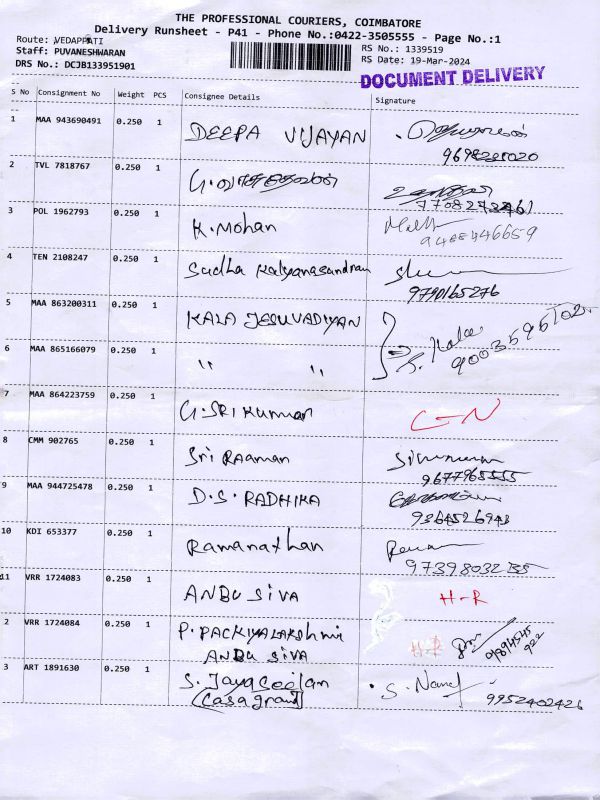 THE PROFESSIONAL COURIERS, COIMBATORE
Delivery Runsheet - P41 - Phone No.:0422-3505555 - Page No.:1
Route: VEDAPPATI RS No.: 1339519
Staff: PUVANESHWARAN RS Date: 19-Mar-2024
DRS No.: DCJB133951901
DOCUMENT DELIVERY
S No Consignment No Weight PCS Consignee Details Signature
1 MAA 943690491 0.250 1 DEEPA VIJAYAN
2 TVL 7818767 0.250 1
3 POL 1962793 0.250 1 K.Mohan
4 TEN 2108247 0.250 1 Sudha Kalyanasandram
9790165276
5 MAA 863200311 0.250 1 KALA JESUVADIYAN
6 MAA 865166079 0.250 1 " "
7 MAA 864223759 0.250 1 G.SRI Kumar C-N
8 CMM 902765 0.250 1 Sri RAaman
9677965555
9 MAA 944725478 0.250 1 D.S. RADHIKA
10 KDI 653377 0.250 1 Ramanathan
11 VRR 1724083 0.250 1 ANBU SIVA H-R
2 VRR 1724084 0.250 1 P. PACKIYALAKshmi H-R
ANBU SIVA
3 ART 1891630 0.250 1 S. Jayaseelan
(Casagrand) 9952402426